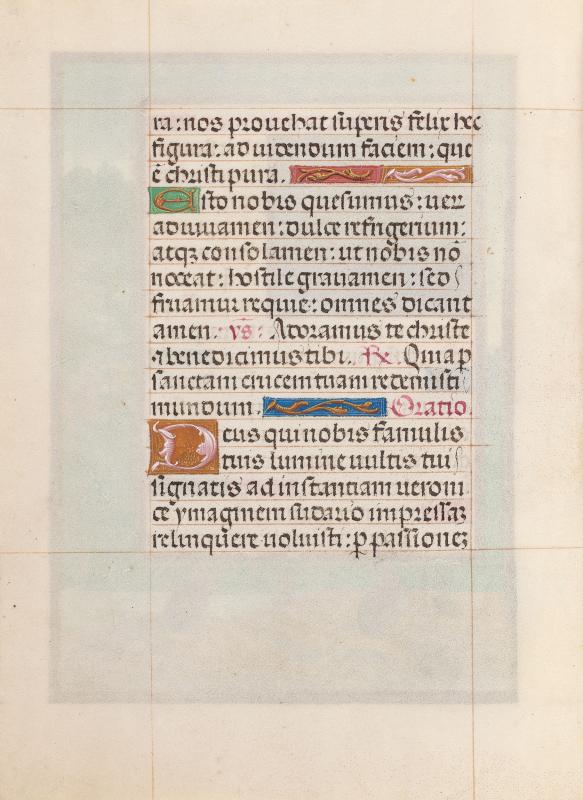 ra: nos prouehat sup̲eris felix hec
figura: ad uidendum faciem: que
ē christi pura.
Esto nobis quesumus: uerꝝ
adiuuamen: dulce refrigerium:
atqꝫ consolamen: ut nobis nō
noceat: hostile grauamen: sed
fruamur requie: omnes dicant
amen. vs̄: Adoramus te christe
⁊ benedicimus tibi. ℞. Quia ꝑ
sanctam crucem tuam redemisti
mundum. Oratio
Deus qui nobis famulis
tuis lumine uultis tui
signatis ad instantiam ueroni
ce ymaginem sudario impressaꝫ
relinquere uoluisti: ꝑ passioneꝫ